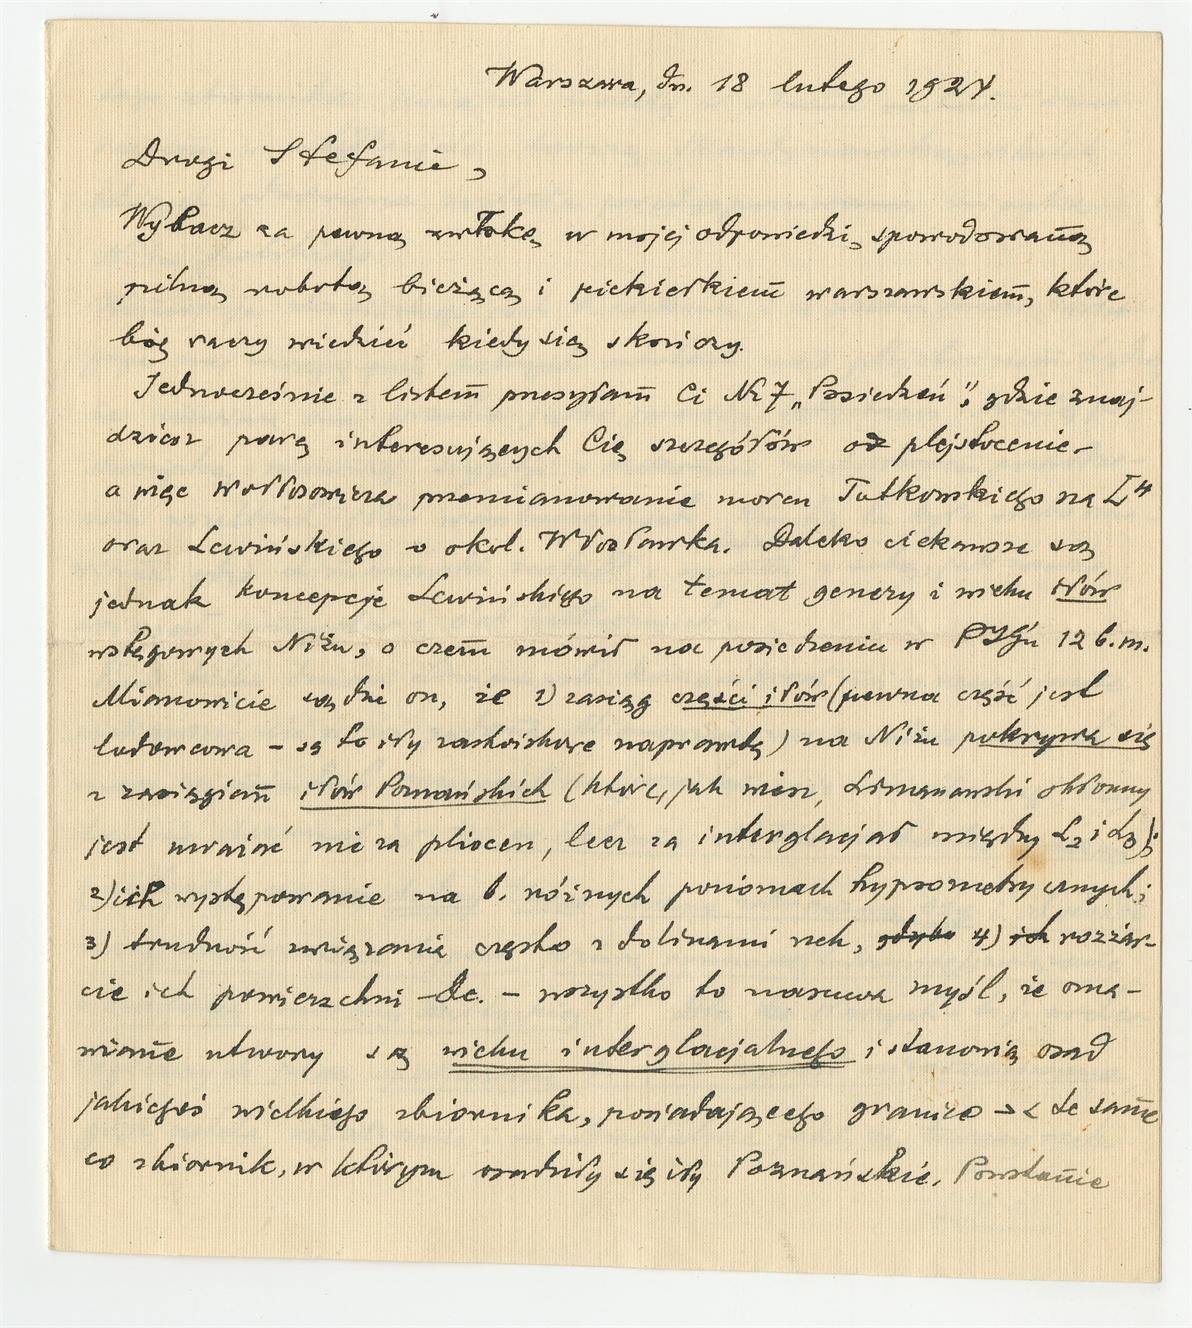 Warszawa, dn. 18 lutego 1924.
Drogi Stefanie,
Wybacz za pewną zwłokę w mojej odpowiedzi, spowodowaną
pilną robotą bieżącą i piekiełkiem warszawskiem, które
bóg raczy wiedzieć kiedy się skończy.
Jednocześnie z listem przesyłam Ci № 7 „Posiedzeń", gdzie znaj-
dziesz parę interesujących Cię szczegółów o plejstocenie –
a więc Wołłosowicza przemianowanie moren Tutkowskiego na L4
oraz Lewińskiego o okol. Włocławka. Daleko ciekawsze są
jednak koncepcje Lewińskiego na temat genezy i wieku iłów
wstęgowych Niżu, o czem mówił na posiedzeniu w PIGu 12 b.m.
Mianowicie sądzi on, że 1) zasiąg części iłów (pewna część jest
lodowcowa – są to iły zastoiskowe naprawdę) na Niżu pokrywa się
z zasiągiem iłów Poznańskich (które, jak wiesz, Limanowski skłonny
jest uważać nie za pliocen, lecz za interglacjał między L2 i L3);
2) ich występowanie na b. różnych poziomach hypsometrycznych;
3) trudność związania często z dolinami rzek, gdyby 4) ich rozżar-
cie ich powierzchni etc. – wszystko to nasuwa myśl, że oma-
wiane utwory są wieku interglacjalnego i stanowią osad
jakiegoś wielkiego zbiornika, posiadającego granice >< te same
co zbiornik, w którym osadziły się iły Poznańskie. Powstanie